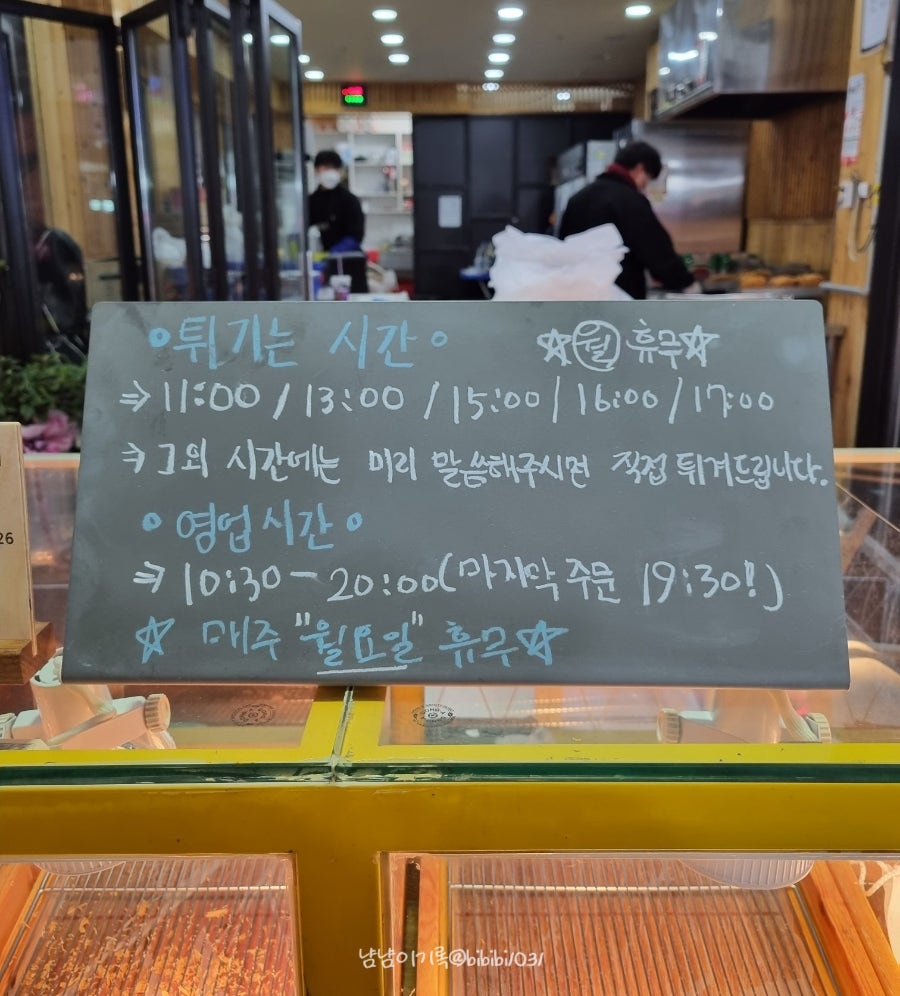 • 튀기는 시간 • ☆㊊ 휴무☆
⇒ 11:00 / 13:00 / 15:00 / 16:00 / 17:00
⇒ 그외 시간에는 미리 말씀해주시면 직접 튀겨드립니다.
• 영업시간 •
⇒ 10:30 - 20:00 (마지막 주문 19:30!)
☆ 매주 "월요일" 휴무☆
26
냠냠이기록@bibibi1031